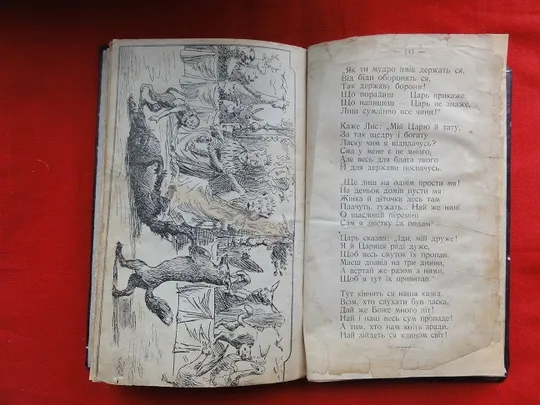 — 141 —
„Як ти мудро вмів держать ся,
Від біди оборонять ся,
Так державу борони!
Що порадиш — Царь прикаже,
Що напишеш — Царь не змаже,
Лиш сумлінно все чини!"
Каже Лис: „Мій Царю й тату,
За так щедру і богату
Ласку чим я відплачусь?
Сил у мене є не много,
Але весь для блага твого
І для держави посвячусь.
„Ще лиш на однім прости ми!
На деньок домів пусти ми!
Жінка й діточки десь там
Плачуть, тужать.. Най же нині
О щасливій переміні
Сам я звістку їм подам"
Царь сказав: „Іди, мій друже!
І й Цариця рад дуже,
Щоб весь смуток їх пропав.
Маєш дозвіл на три днини,
А вертай же разом з ними,
Щоб я тут їх привитав."
Тут кінчить ся наша казка.
Всім, хто слухати був ласка,
Дай же Боже много літ!
Най і наш весь сум пропаде!
А тим, хто нам квіть зради,
Най зійдеть ся клином світ!